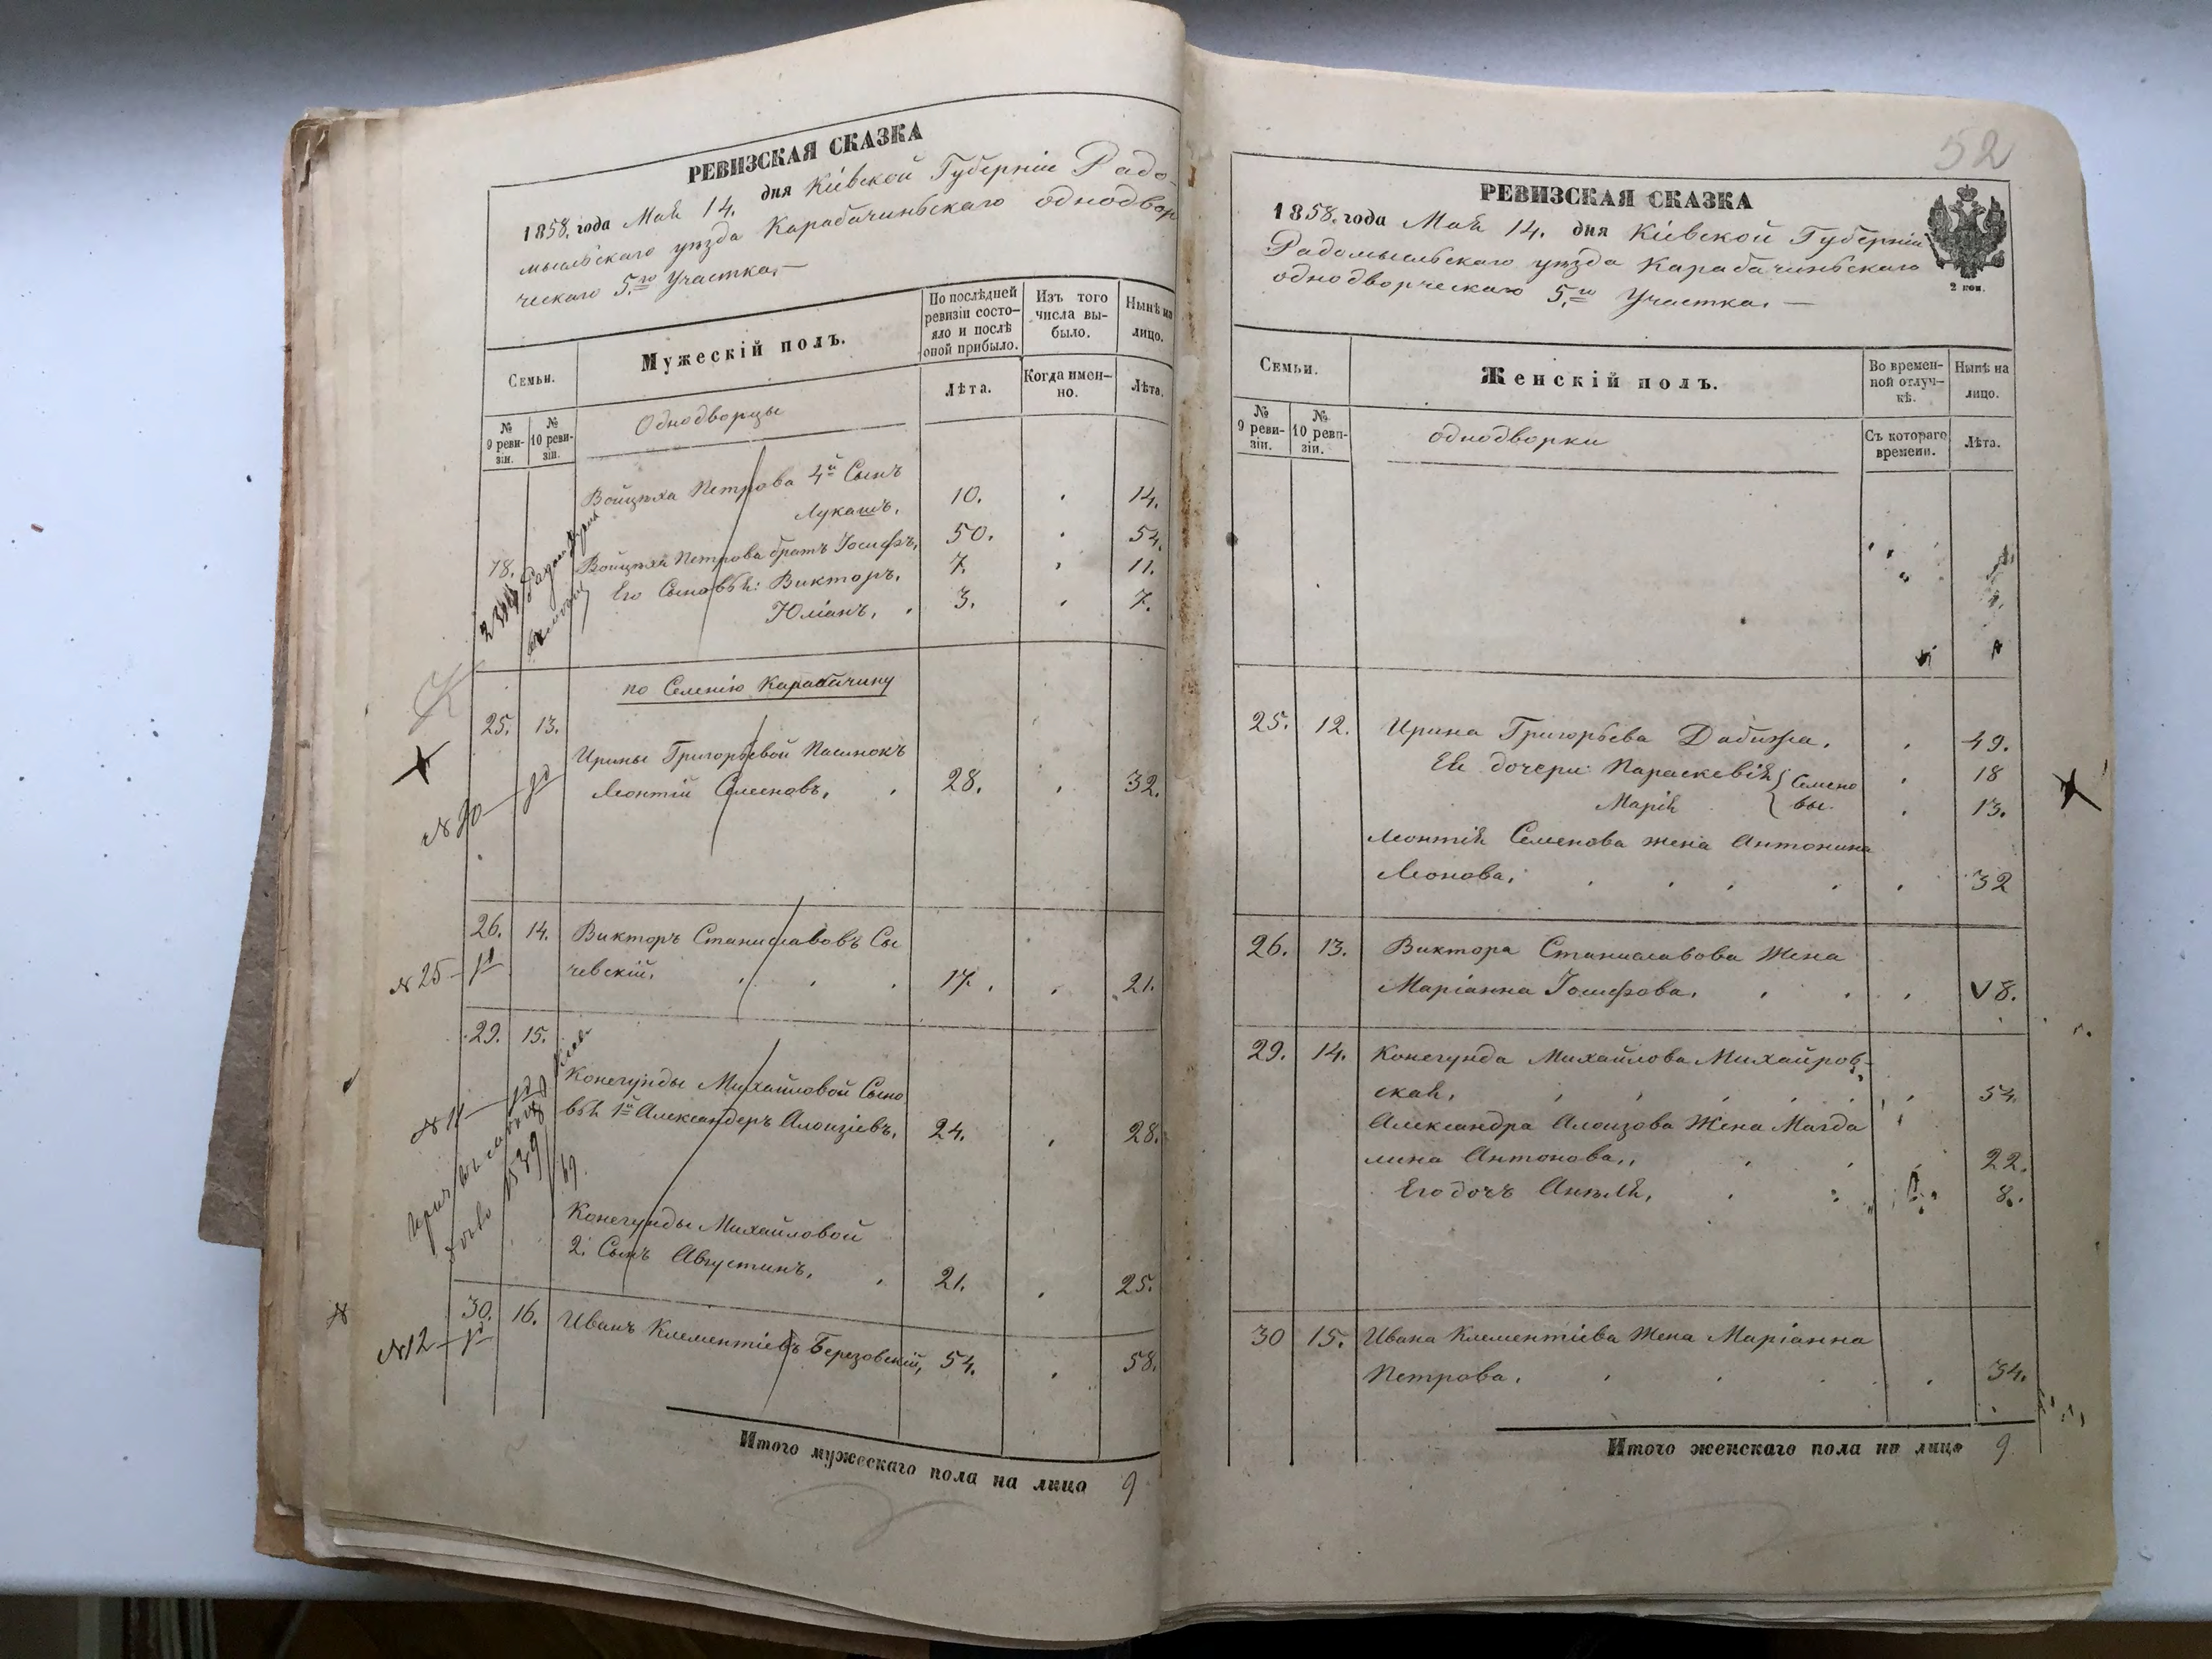 РЕВИЗСКАЯ СКАЗКА
1858. года Мая 14. дня Кіевской Губерніи Радо-
мысльскаго уѣзда Карабачиньскаго однодвор
ческаго 5.го Участка.—
Семьи.
Мужескій полъ.
По послѣдней ревизіи состо-яло и послѣ оной прибыло.
Изъ того числа вы-было.
Нынѣ на лицо.
Лѣта.
Когда имен-но.
Лѣта.
№ 9 реви-зіи.
№ 10 реви-зіи.
Однодворцы
Войцѣха Петрова 4й Сынъ
Лукашъ, 10. 14.
18. Войцѣха Петрова братъ Іосифъ, 50. 54.
Его Сыновья: Викторъ, 7. 11.
Юліанъ, 3. 7.
по Селенію Карабачину
25. 13.
Ирины Григорьевой Пасынокъ
Леонтій Семеновъ, 28. 32.
26. 14. Викторъ Станиславовъ Сы
№25 чевскій, 17. 21.
29. 15.
Конегунды Михайловой Сыно
№11 вья 1й Александеръ Алоизіевъ, 24. 28.
Конегунды Михайловой
2. Сынъ Августинъ, 21. 25.
30. 16. Иванъ Клементіевъ Березовскій, 54. 58.
№12
Итого мужескаго пола на лицо 9
52
РЕВИЗСКАЯ СКАЗКА
1858. года Мая 14. дня Кіевской Губерніи
Радомысльскаго уѣзда Карабачиньскаго
однодворческаго 5.го Участка.—
2 коп.
Семьи.
Женскій полъ.
Во времен-ной отлуч-кѣ.
Нынѣ на лицо.
№ 9 реви-зіи.
№ 10 реви-зіи.
Съ котораго времени.
Лѣта.
однодворки
25. 12. Ирина Григорьева Дабижа. 49.
Ея дочери Параскевія Семено 18
Марія вы. 13.
Леонтія Семенова жена Антонина
Леонова, 32
26. 13. Виктора Станиславова Жена
Маріанна Іосифова, 18.
29. 14. Конегунда Михайлова Михайров-
ская, 54.
Александра Алоизова Жена Магда
лина Антонова, 22.
Его дочь Анеля, 8.
30 15. Ивана Клементіева Жена Маріанна
Петрова. 34.
Итого женскаго пола на лицо 9